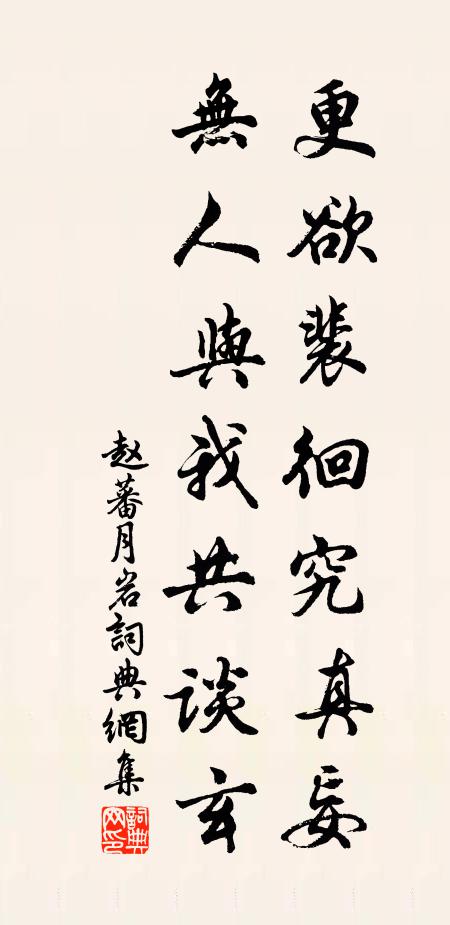 更欲裴徊究真妄
無人與我共谈玄
赵蕃月岩詞典網集
詞典網印